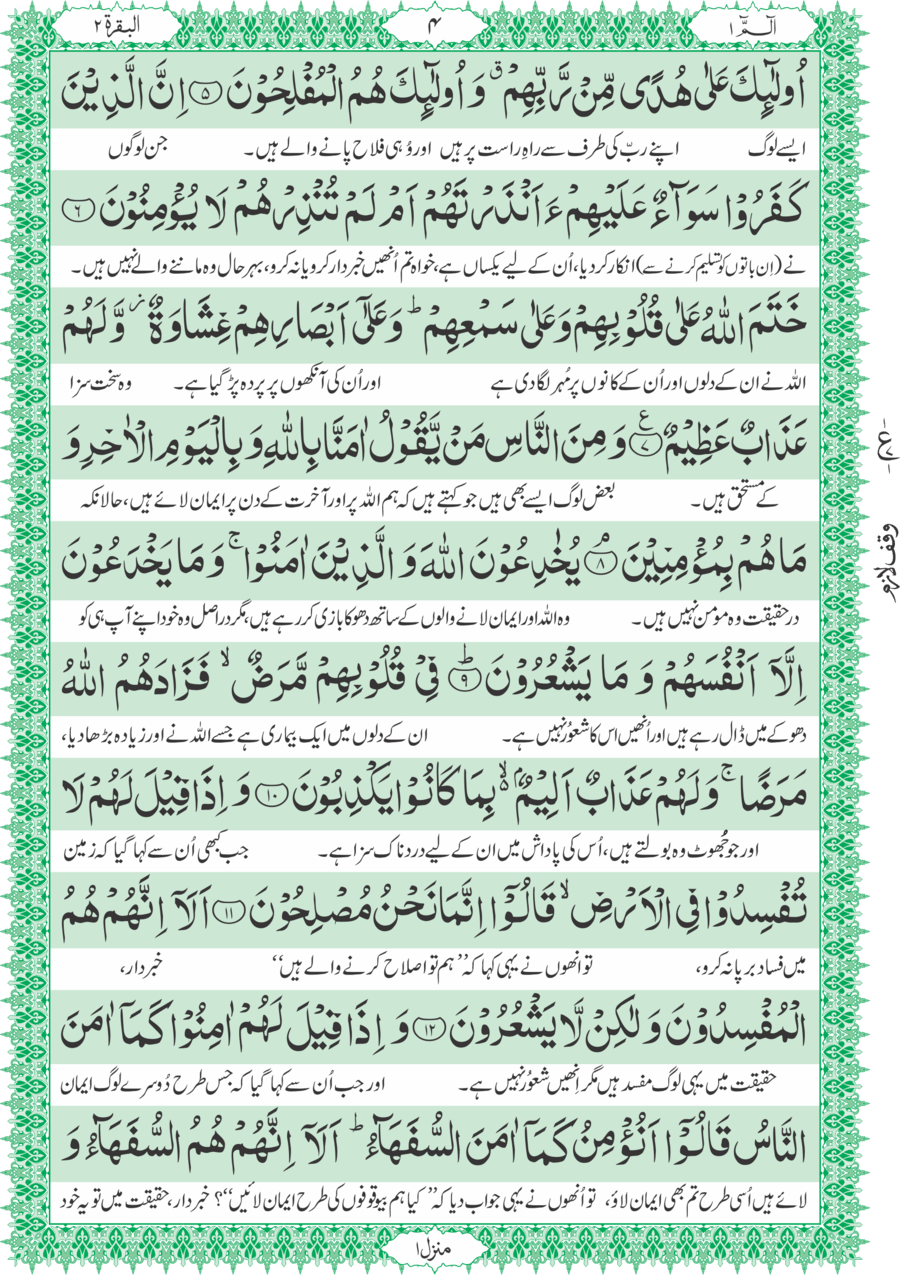 الٓـمّٓ ۱
۴
البقرة ۲
اُولٰٓئِكَ عَلٰى هُدًى مِّنْ رَّبِّهِمْ ۗ وَ اُولٰٓئِكَ هُمُ الْمُفْلِحُوْنَ ۝۵ اِنَّ الَّذِيْنَ
ایسے لوگ اپنے ربّ کی طرف سے راہِ راست پر ہیں اور وُہی فلاح پانے والے ہیں۔ جن لوگوں
كَفَرُوْا سَوَآءٌ عَلَيْهِمْ ءَاَنْذَرْتَهُمْ اَمْ لَمْ تُنْذِرْهُمْ لَا يُؤْمِنُوْنَ ۝۶
نے (اِن باتوں کو تسلیم کرنے سے) انکار کر دیا، اُن کے لیے یکساں ہے، خواہ تم اُنھیں خبردار کرو یا نہ کرو، بہرحال وہ ماننے والے نہیں ہیں۔
خَتَمَ اللّٰهُ عَلٰى قُلُوْبِهِمْ وَعَلٰى سَمْعِهِمْ ؕ وَعَلٰٓى اَبْصَارِهِمْ غِشَاوَةٌ ؗ وَّلَهُمْ
اللہ نے ان کے دلوں اور اُن کے کانوں پر مُہر لگا دی ہے اور اُن کی آنکھوں پر پردہ پڑ گیا ہے۔ وہ سخت سزا
عَذَابٌ عَظِيْمٌ ۝۷ ع وَ مِنَ النَّاسِ مَنْ يَّقُوْلُ اٰمَنَّا بِاللّٰهِ وَ بِالْيَوْمِ الْاٰخِرِ وَ
کے مستحق ہیں۔ بعض لوگ ایسے بھی ہیں جو کہتے ہیں کہ ہم اللہ پر اور آخرت کے دن پر ایمان لائے ہیں، حالانکہ
مَا هُمْ بِمُؤْمِنِيْنَ ۝۸ۘ يُخٰدِعُوْنَ اللّٰهَ وَ الَّذِيْنَ اٰمَنُوْا ۚ وَ مَا يَخْدَعُوْنَ
درحقیقت وہ مومن نہیں ہیں۔ وہ اللہ اور ایمان لانے والوں کے ساتھ دھوکا بازی کر رہے ہیں، مگر دراصل وہ خود اپنے آپ ہی کو
اِلَّآ اَنْفُسَهُمْ وَ مَا يَشْعُرُوْنَ ۝۹ؕ فِيْ قُلُوْبِهِمْ مَّرَضٌ ۙ فَزَادَهُمُ اللّٰهُ
دھوکے میں ڈال رہے ہیں اور اُنھیں اس کا شعُور نہیں ہے۔ ان کے دلوں میں ایک بیماری ہے جسے اللہ نے اور زیادہ بڑھا دیا،
مَرَضًا ۚ وَلَهُمْ عَذَابٌ اَلِيْمٌۢ ۙ بِمَا كَانُوْا يَكْذِبُوْنَ ۝۱۰ وَ اِذَا قِيْلَ لَهُمْ لَا
اور جو جھُوٹ وہ بولتے ہیں، اُس کی پاداش میں ان کے لیے دردناک سزا ہے۔ جب کبھی اُن سے کہا گیا کہ زمین
تُفْسِدُوْا فِي الْاَرْضِ ۙ قَالُوْٓا اِنَّمَا نَحْنُ مُصْلِحُوْنَ ۝۱۱ اَلَآ اِنَّهُمْ هُمُ
میں فساد برپا نہ کرو، تو انھوں نے یہی کہا کہ ’’ہم تو اصلاح کرنے والے ہیں‘‘ خبردار،
الْمُفْسِدُوْنَ وَ لٰكِنْ لَّا يَشْعُرُوْنَ ۝۱۲ وَ اِذَا قِيْلَ لَهُمْ اٰمِنُوْا كَمَآ اٰمَنَ
حقیقت میں یہی لوگ مفسد ہیں مگر اِنھیں شعوُر نہیں ہے۔ اور جب اُن سے کہا گیا کہ جس طرح دُوسرے لوگ ایمان
النَّاسُ قَالُوْٓا اَنُؤْمِنُ كَمَآ اٰمَنَ السُّفَهَآءُ ؕ اَلَآ اِنَّهُمْ هُمُ السُّفَهَآءُ وَ
لائے ہیں اُسی طرح تم بھی ایمان لاؤ، تو اُنھوں نے یہی جواب دیا کہ ’’کیا ہم بیوقوفوں کی طرح ایمان لائیں‘‘؟ خبردار، حقیقت میں تو یہ خود
وقف لازم
منزل ۱